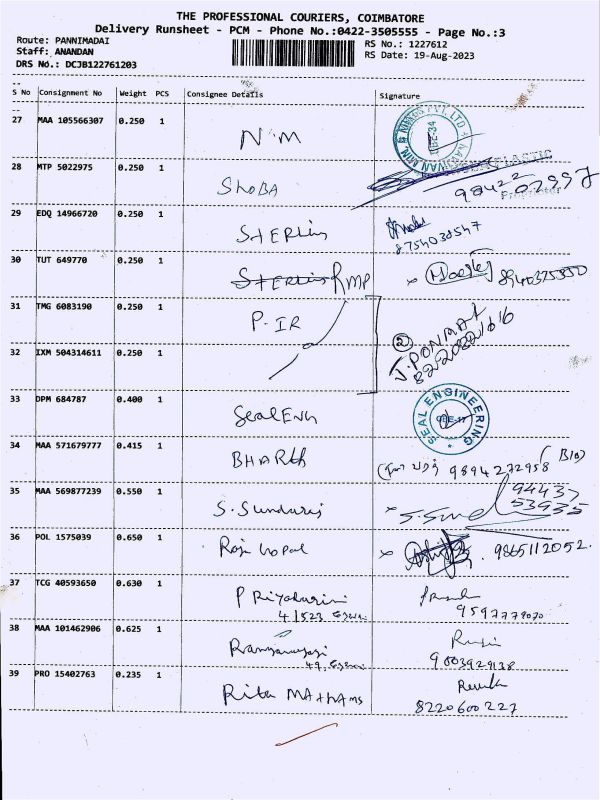 THE PROFESSIONAL COURIERS, COIMBATORE
Delivery Runsheet - PCM - Phone No.:0422-3505555 - Page No.:3
Route: PANNIMADAI RS No.: 1227612
Staff: ANANDAN RS Date: 19-Aug-2023
DRS No.: DCJB122761203
S No Consignment No Weight PCS Consignee Details Signature
27 MAA 105566307 0.250 1 N.M
28 MTP 5022975 0.250 1 SHOBA 98422 02997
Proprietor
29 EDQ 14966720 0.250 1 STERLING
8754038547
30 TUT 649770 0.250 1 RMP 8940375350
31 TMG 6083190 0.250 1 P.IR
32 IXM 504314611 0.250 1 2 J.PONMAY
8220821616
33 DPM 684787 0.400 1 Seal ENG SEAL ENGINEERING
34 MAA 571679777 0.415 1 BHARth 9894272958
35 MAA 569877239 0.550 1 S. Sundari 94437
53935
36 POL 1575039 0.650 1 Raja Gopal 9865112052.
37 TCG 40593650 0.630 1 P Riyadarini
4/523 9597779070
38 MAA 101462906 0.625 1
49, 9003929138
39 PRO 15402763 0.235 1 Rita MATHAMS
8220600227